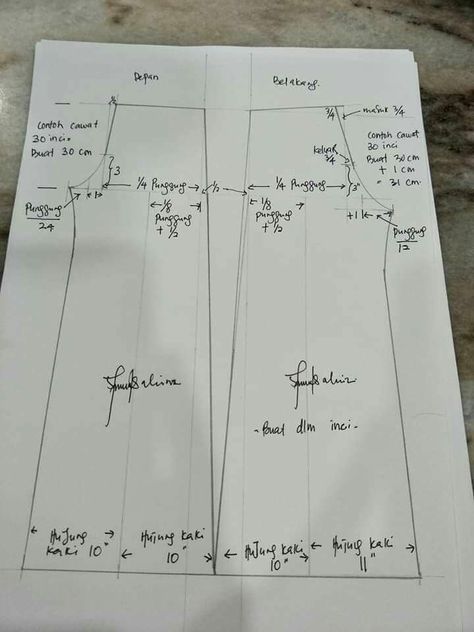 Depan
Belakang.
Contoh cawat
30 inci.
Buat 30 cm
3
1/4 Punggung
1/8
Punggung
+ 1/2
+1
Punggung
24
1/2
3/4
masuk 3/4
keluar
3/4
Contoh cawat
30 inci
Buat 30 cm
+ 1 cm
= 31 cm
1/4 Punggung
3"
1/8
Punggung
+ 1/2
+1
Punggung
12
- Buat dlm inci -
Hujung
kaki 10"
Hujung kaki
10"
Hujung kaki
10"
Hujung kaki
11"